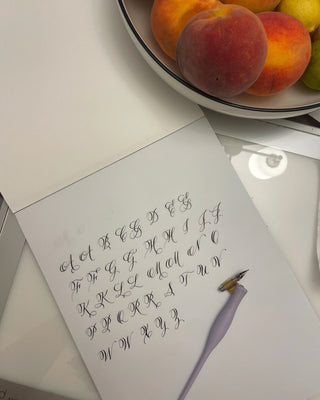 A A B C C D E E
F F G G H H I J J
K K L L M M N N O
P P Q R R S T U V
W W X Y Z